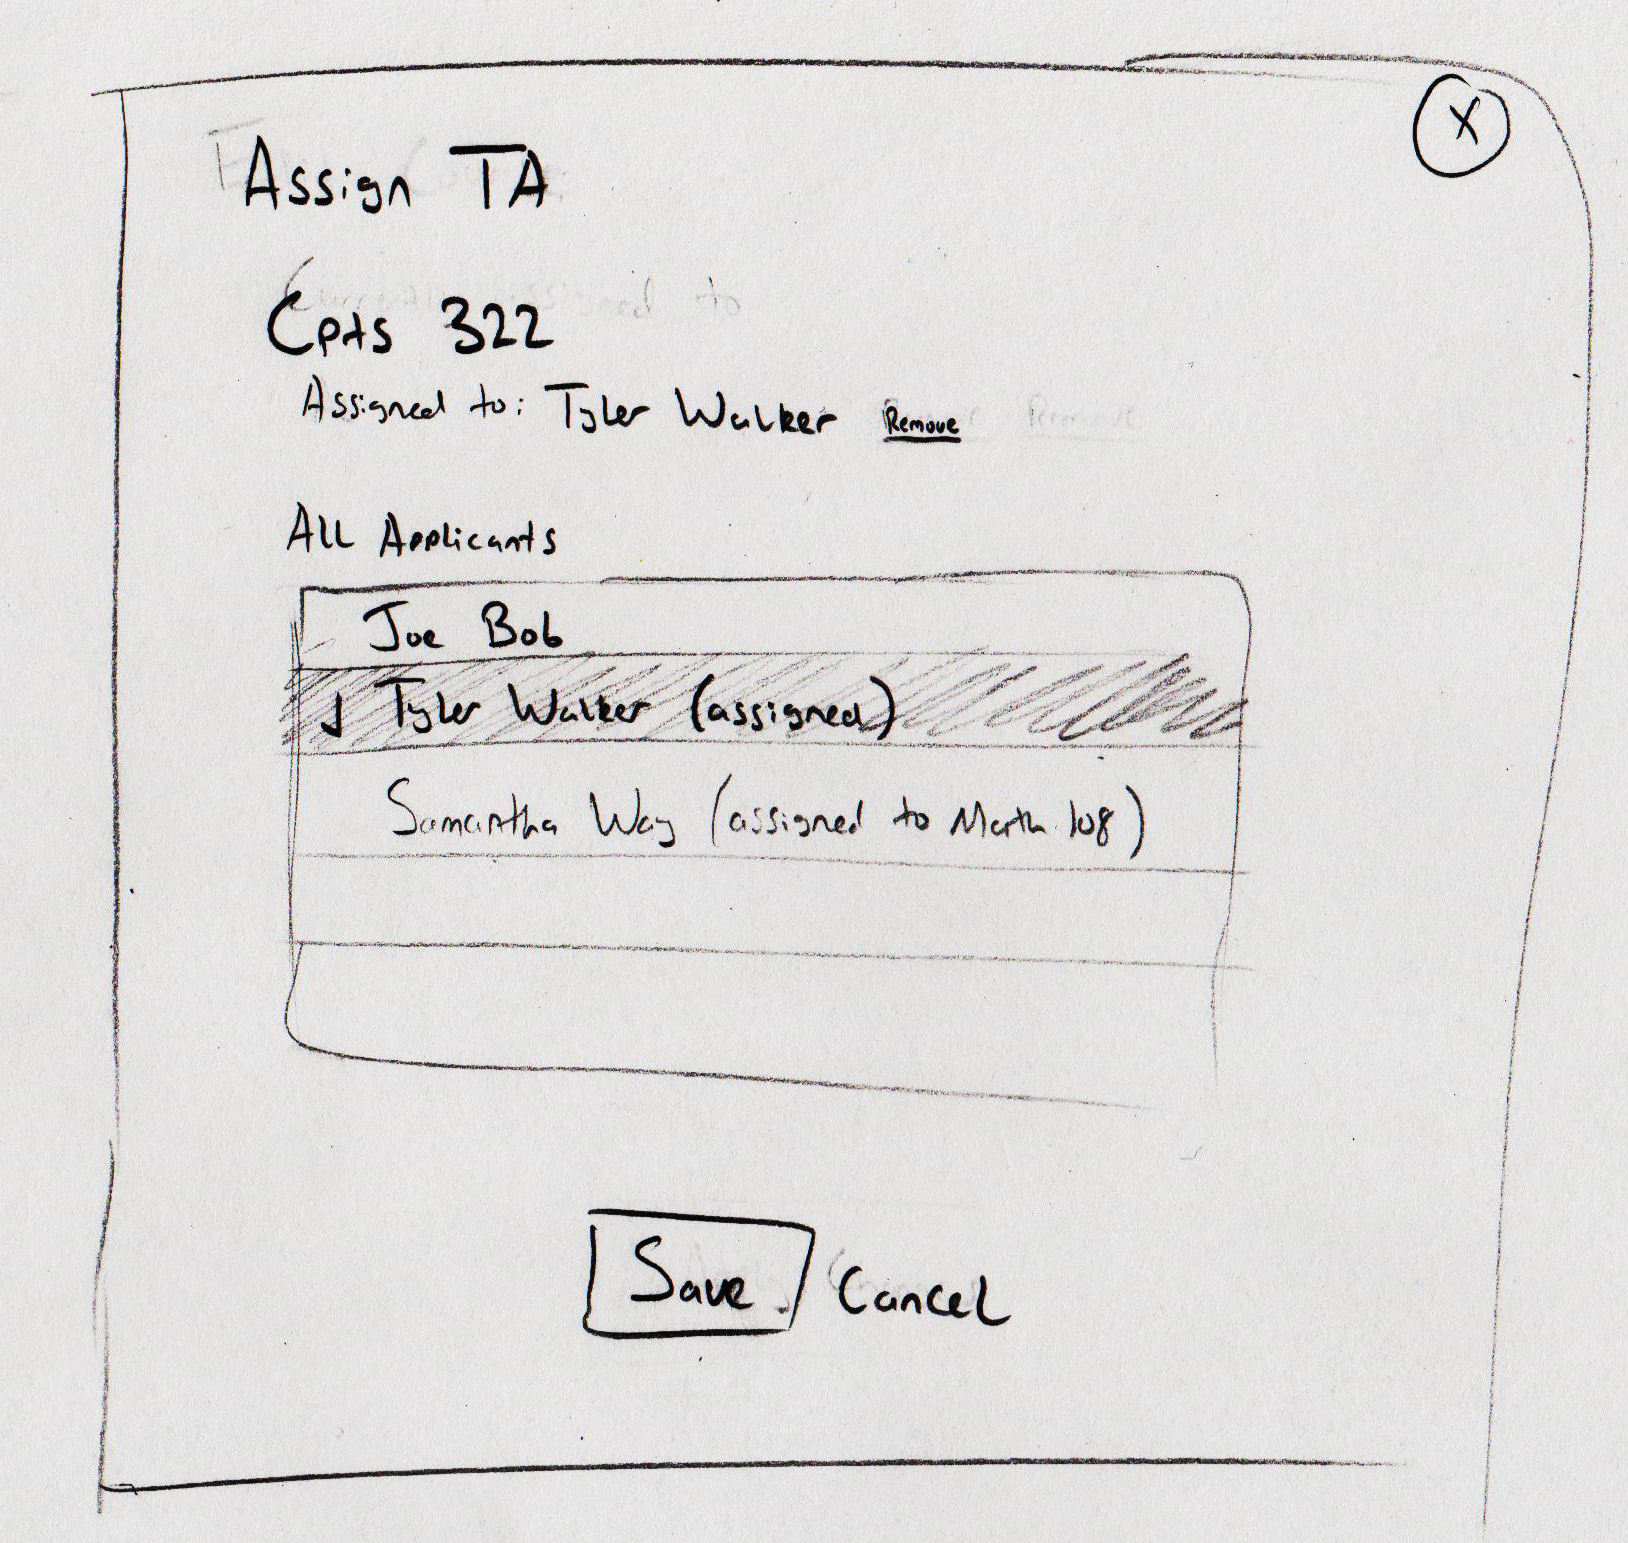 X
Assign TA
Cpts 322
Assigned to: Tyler Walker Remove
All Applicants
Joe Bob
✓ Tyler Walker (assigned)
Samantha Way (assigned to Math 108)
Save Cancel